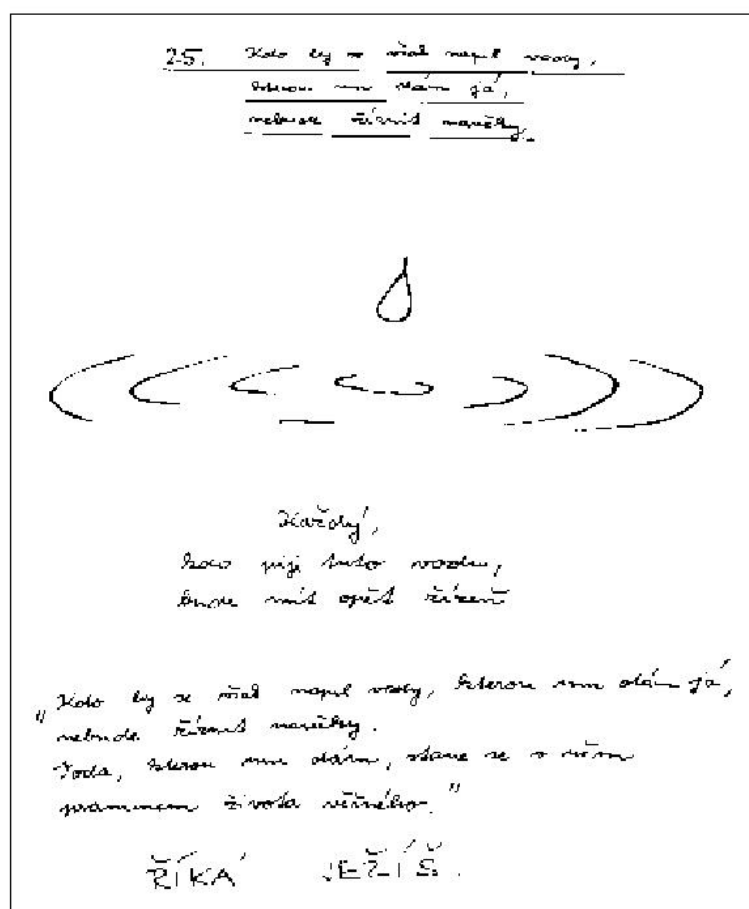 25. Kdo by se však napil vody,
kterou mu dám já,
nebude žíznit navěky.
Každý,
kdo pije tuto vodu,
bude mít opět žízeň
„Kdo by se však napil vody, kterou mu dám já,
nebude žíznit navěky.
Voda, kterou mu dám, stane se v něm
pramenem života věčného."
ŘÍKÁ JEŽÍŠ.